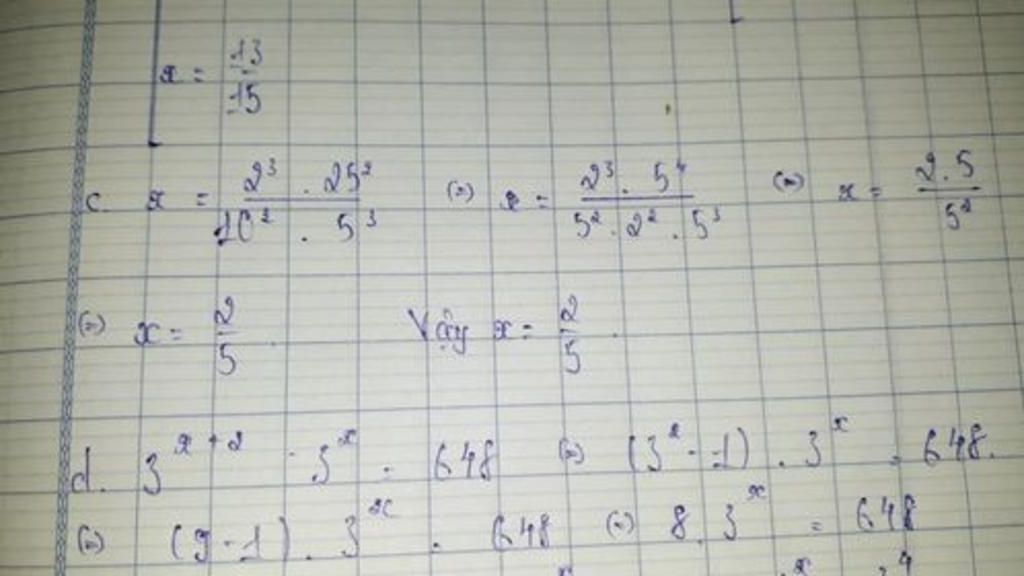 x = 13/15
c. x = 2³ . 25² / 10² . 5³ (=) x = 2³ . 5⁴ / 5² . 2² . 5³ (=) x = 2 . 5 / 5²
(=) x = 2/5 . Vậy x = 2/5 .
d. 3ˣ⁺² - 3ˣ = 648 (=) (3² - 1) . 3ˣ = 648.
(=) (9 - 1) . 3ˣ = 648 (=) 8 . 3ˣ = 648